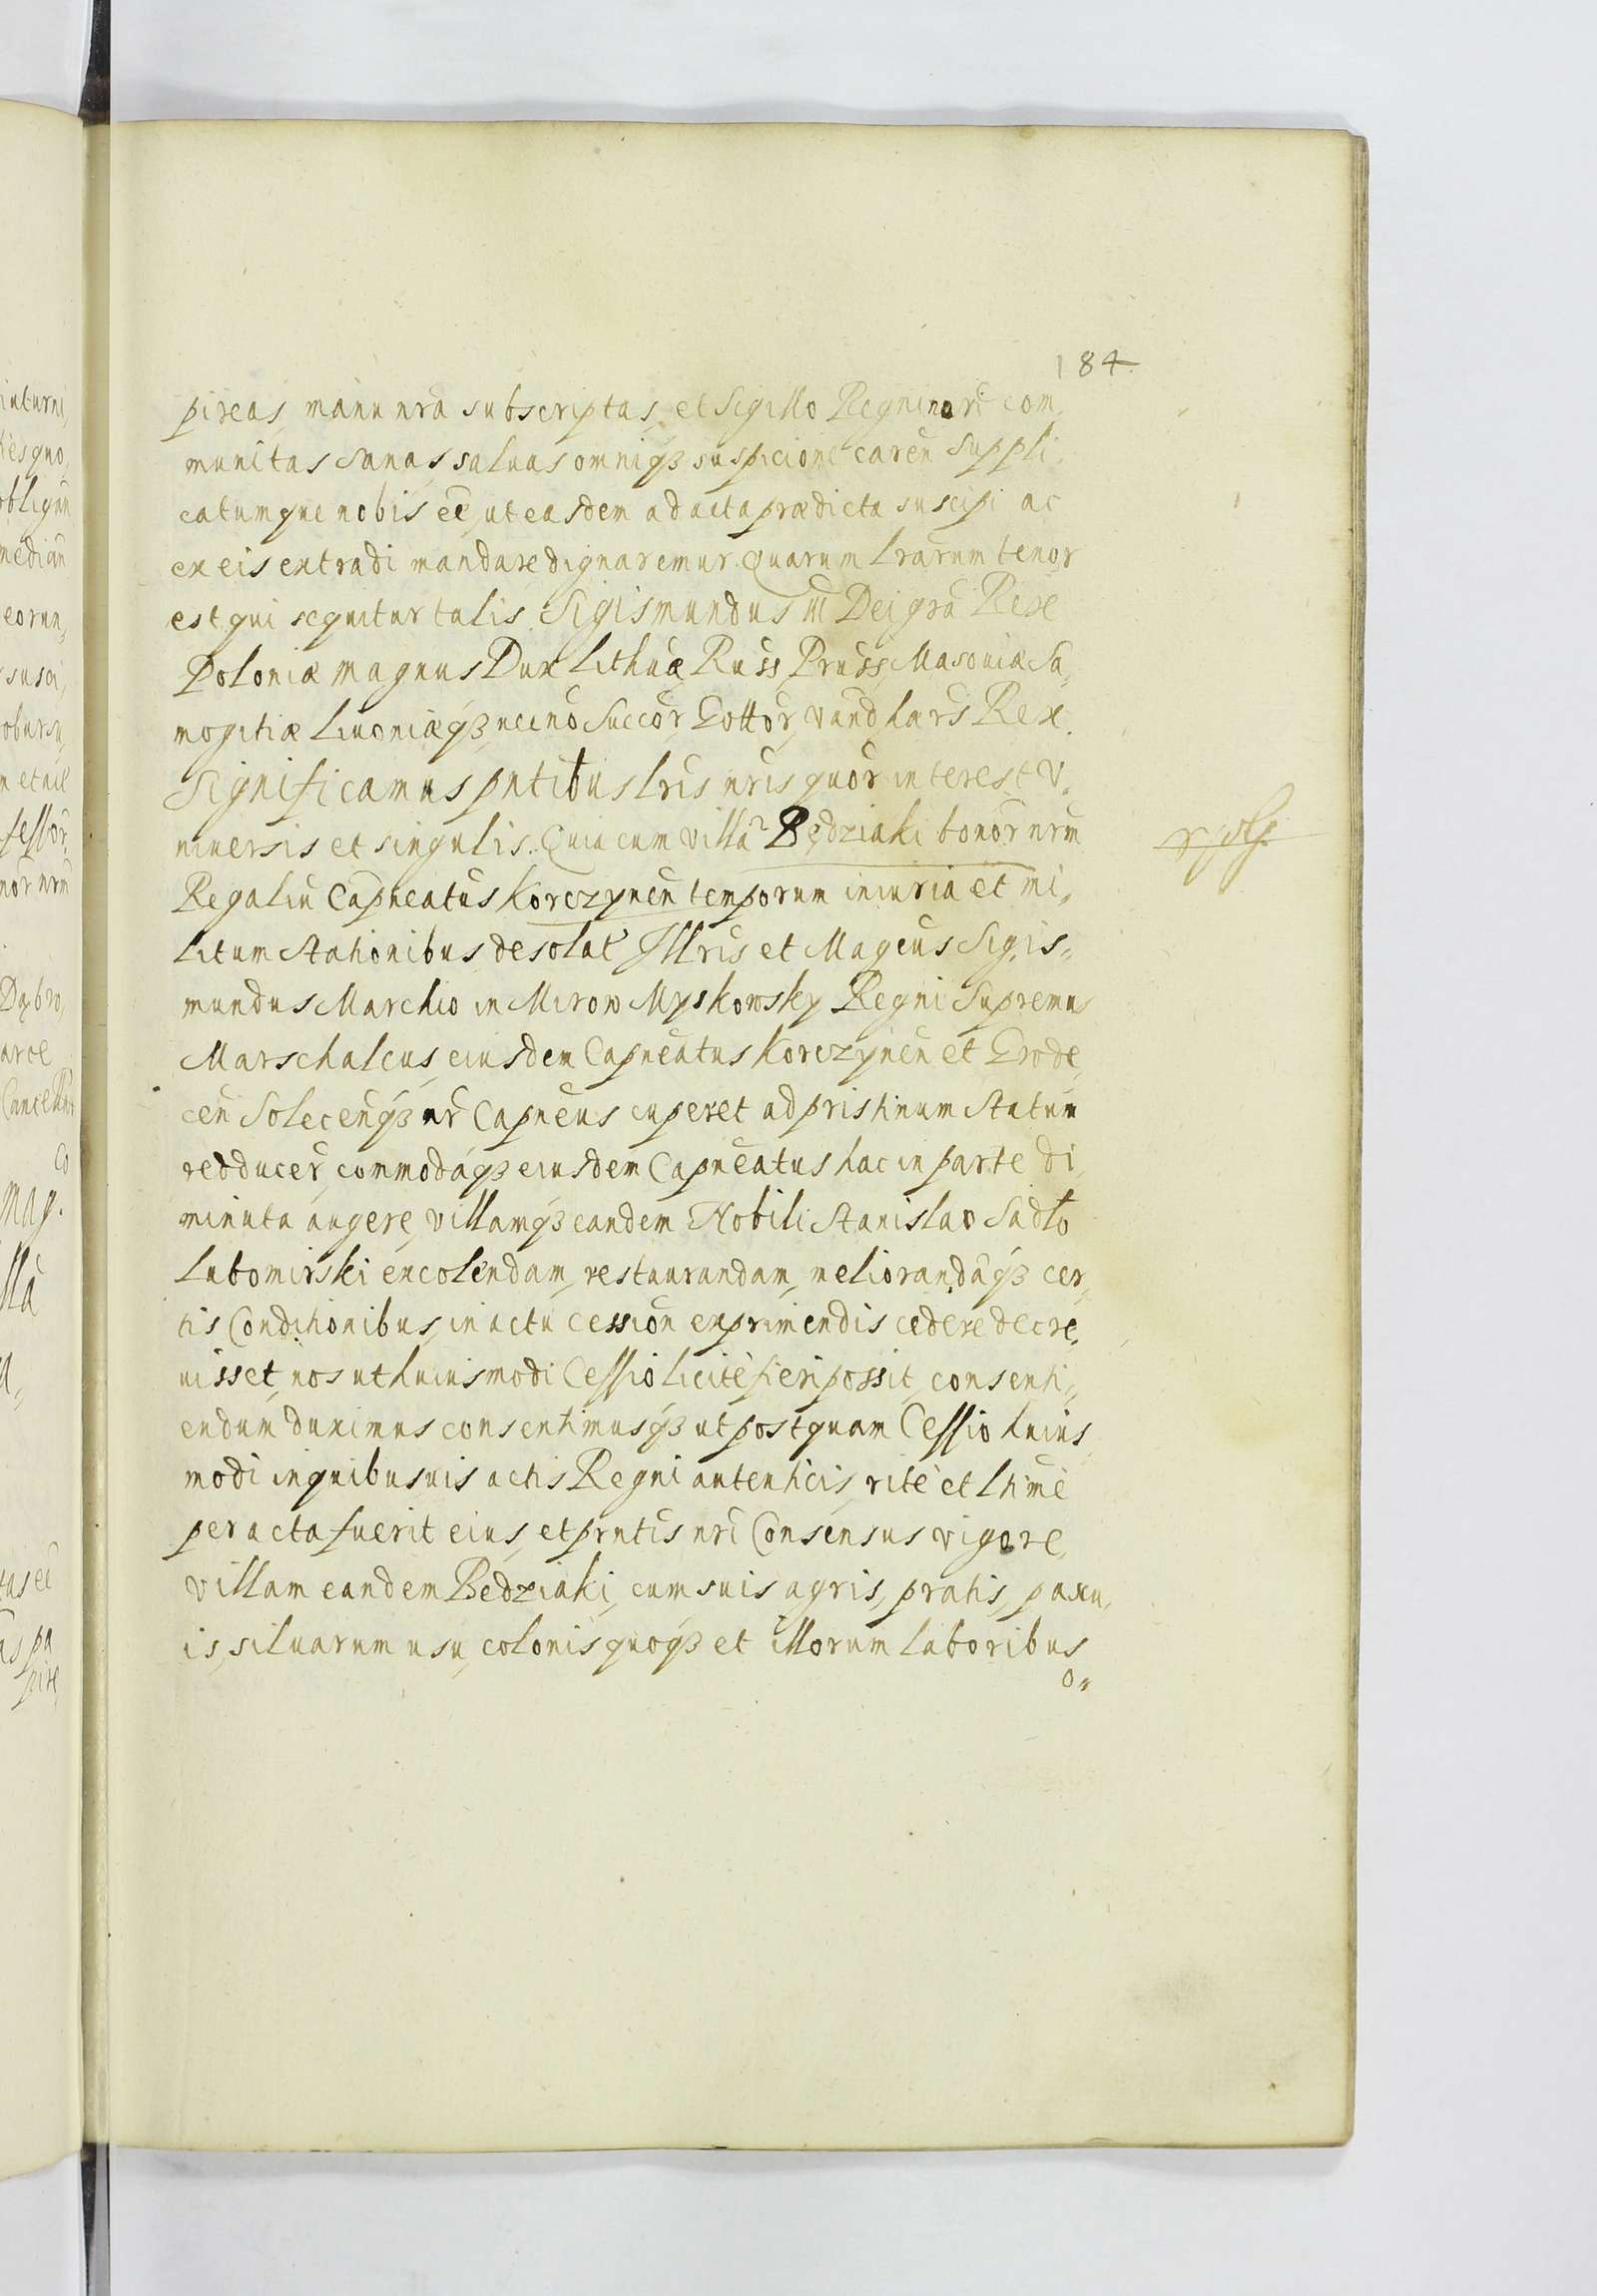 184.
pireas, manu nrã subscriptas, et Sigillo Regni nrĩ com„
munitas sanas saluas omniqз suspicione carẽn Suppli„
catumque nobis eẽ, ut easdem ad acta prædicta suscipi ac
ex eis extradi mandare dignaremur. Quarum lrarum tenor
est qui sequitur talis. Sigismundus III Dei grã Rex
Poloniæ magnus Dux Lithuæ, Russ, Pruss, Masouiæ Sa„
mogitiæ Liuoniæqз, necno Succor Gottor, Vand hærs Rex.
Significamus pntibus lris nris quor interest V„
niuersis et singulis. Quia cum villa Będziaki bonor nrm
Regaliu Capneatus Korczynen temporum iniuria et mi„
litum stationibus desolat Illris et Magcus Sigis„
mundus Marchio in Mirow Myskowsky Regni Supremus
Marschalcus, eiusdem Capneatus Korczynen et Grode„
cen Solecenqз nr Capneus cuperet ad pristinum statum
redducer, commodaqз eiusdem Capneatus hac in parte di„
minuta augere, villamqз eandem Nobili Stanislao Sadło
Lubomirski excolendam, restaurandam, meliorandaqз cer„
tis Conditionibus, in actu cession exprimendis cedere decre„
uisset, nos ut huiusmodi Cessio licite fieri possit, consenti„
endum duximus consentimusqз ut postquam Cessio huius„
modi in quibusuis actis Regni autenticis, rite et ltime
peracta fuerit eius, et pntis nri Consensus vigore,
villam eandem Bedziaki, cum suis agris, pratis, pascu„
is, siluarum usu, colonis quoqз et illorum laboribus
o„